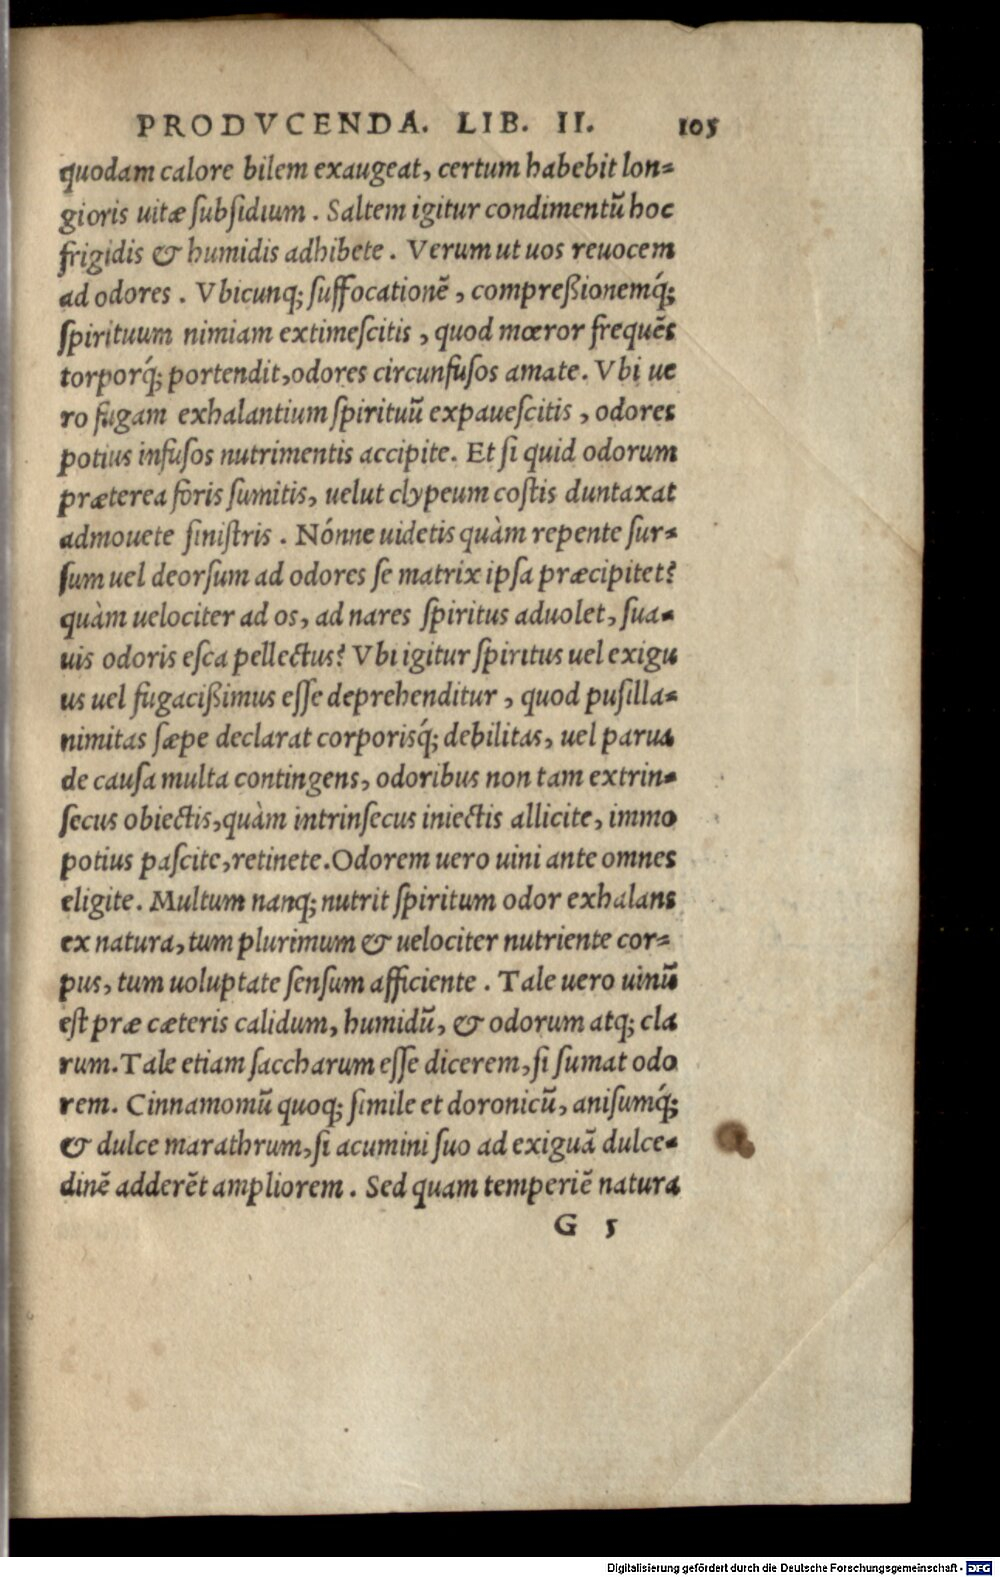 PRODVCENDA. LIB. II. 105
quodam calore bilem exaugeat, certum habebit lon=
gioris uitæ subsidium. Saltem igitur condimentũ hoc
frigidis & humidis adhibete. Verum ut uos reuocem
ad odores. Vbicunq; suffocationẽ, compreßionemq́;
spirituum nimiam extimescitis, quod mœror frequẽs
torporq́; portendit, odores circunfusos amate. Vbi ue
ro fugam exhalantium spirituũ expauescitis, odores
potius infusos nutrimentis accipite. Et si quid odorum
præterea foris sumitis, uelut clypeum costis duntaxat
admouete sinistris. Nónne uidetis quàm repente sur=
sum uel deorsum ad odores se matrix ipsa præcipitet?
quàm uelociter ad os, ad nares spiritus aduolet, sua=
uis odoris esca pellectus? Vbi igitur spiritus uel exigu
us uel fugacißimus esse deprehenditur, quod pusilla=
nimitas sæpe declarat corporisq́; debilitas, uel parua
de causa multa contingens, odoribus non tam extrin=
secus obiectis, quàm intrinsecus iniectis allicite, immo
potius pascite, retinete. Odorem uero uini ante omnes
eligite. Multum nanq; nutrit spiritum odor exhalans
ex natura, tum plurimum & uelociter nutriente cor=
pus, tum uoluptate sensum afficiente. Tale uero uinũ
est præ cæteris calidum, humidũ, & odorum atq; cla
rum. Tale etiam saccharum esse dicerem, si sumat odo
rem. Cinnamomũ quoq; simile et doronicũ, anisumq́;
& dulce marathrum, si acumini suo ad exiguã dulce=
dinẽ adderẽt ampliorem. Sed quam temperiẽ natura
G 5
Digitalisierung gefördert durch die Deutsche Forschungsgemeinschaft - DFG